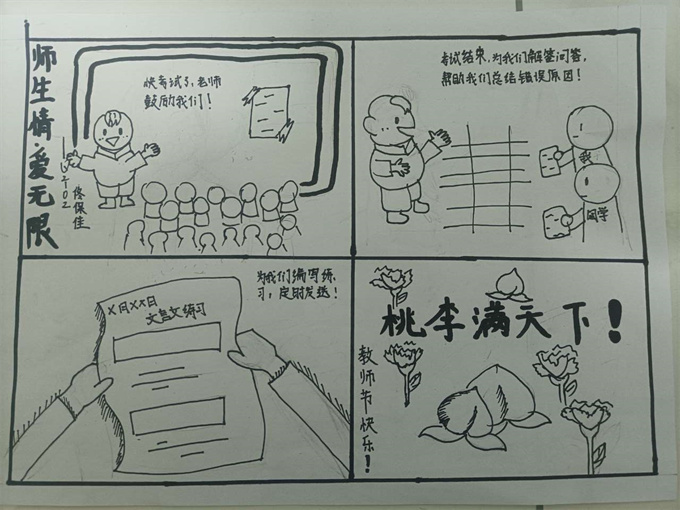 师生情·爱无限
佟保佳
快考试了,老师
鼓励我们!
考试结束,为我们解答问答,
帮助我们总结错误原因!
我
同学
为我们编写练
习,定时发送!
X月XX日
文言文练习
桃李满天下!
教师节快乐!